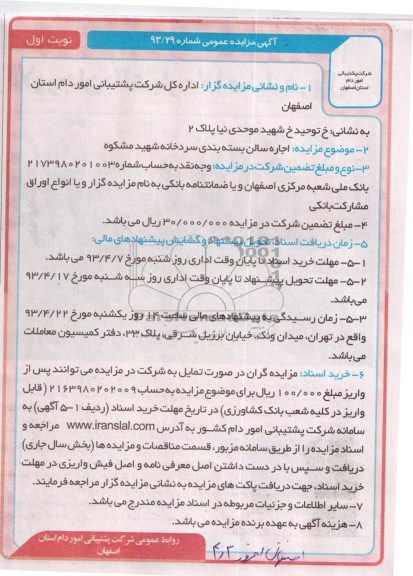 آگهی مزایده عمومی شماره ۹۳/۲۹
نوبت اول
شرکت پشتیبانی
امور دام
استان اصفهان
۱- نام و نشانی مزایده گزار: اداره کل شرکت پشتیبانی امور دام استان
اصفهان
به نشانی: خ توحید خ شهید موحدی نیا پلاک ۲
۲- موضوع مزایده: اجاره سالن بسته بندی سردخانه شهید مشکوه
۳- نوع و مبلغ تضمین شرکت در مزایده: وجه نقد به حساب شماره ۲۱۷۳۹۸۰۲۰۱۰۰۳
بانک ملی شعبه مرکزی اصفهان و یا ضمانتنامه بانکی به نام مزایده گزار و یا انواع اوراق
مشارکت بانکی
۴- مبلغ تضمین شرکت در مزایده ۳۰/۰۰۰/۰۰۰ ریال می باشد.
۵- زمان دریافت اسناد، تحویل پیشنهاد و گشایش پیشنهادهای مالی:
۵-۱- مهلت خرید اسناد تا پایان وقت اداری روز شنبه مورخ ۹۳/۴/۷ می باشد.
۵-۲- مهلت تحویل پیشنهاد تا پایان وقت اداری روز سه شنبه مورخ ۹۳/۴/۱۷
می باشد.
۵-۳- زمان رسیدگی به پیشنهادهای مالی ساعت ۱۴ روز یکشنبه مورخ ۹۳/۴/۲۲
واقع در تهران، میدان ونک، خیابان برزیل شرقی، پلاک ۳۳، دفتر کمیسیون معاملات
می باشد.
۶- خرید اسناد: مزایده گران در صورت تمایل به شرکت در مزایده می توانند پس از
واریز مبلغ ۱۰۰/۰۰۰ ریال برای موضوع مزایده به حساب ۲۱۶۳۹۸۰۲۰۲۰۰۹ (قابل
واریز در کلیه شعب بانک کشاورزی) در تاریخ مهلت خرید اسناد (ردیف ۱-۵ آگهی) به
سامانه شرکت پشتیبانی امور دام کشور به آدرس www.iranslal.com مراجعه و
اسناد مزایده را از طریق سامانه مزبور، قسمت مناقصات و مزایده ها (بخش سال جاری)
دریافت و سپس با در دست داشتن اصل معرفی نامه و اصل فیش واریزی در مهلت
خرید اسناد، جهت دریافت پاکت های مزایده به نشانی مزایده گزار مراجعه فرمایند.
۷- سایر اطلاعات و جزئیات مربوطه در اسناد مزایده مندرج می باشد.
۸- هزینه آگهی به عهده برنده مزایده می باشد.
روابط عمومی شرکت پشتیبانی امور دام استان
اصفهان
اصفهان امروز ۴/۳